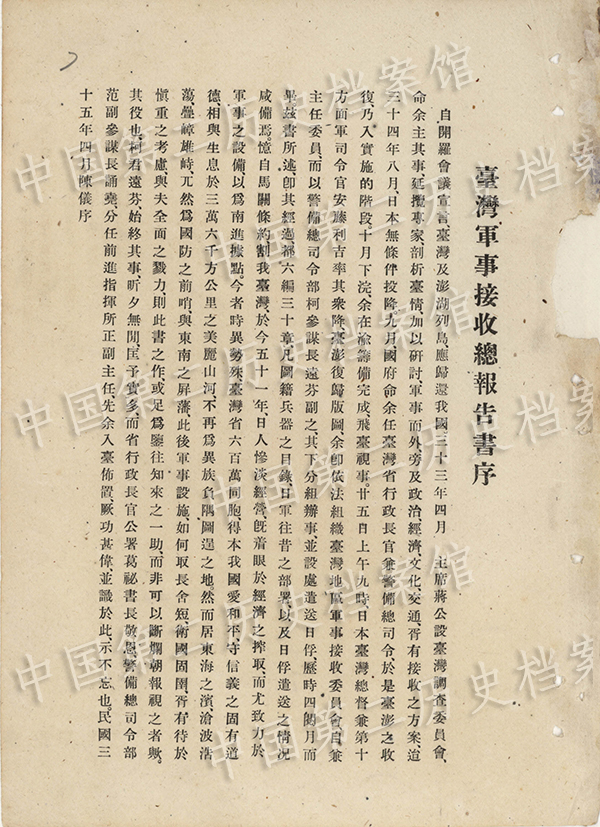 臺灣軍事接收總報告書序
自開羅會議宣言臺灣及澎湖列島、應歸還我國三十三年四月　主席蔣公設臺灣調查委員會、
命余主其事、延攬專家、剖析臺情、加以研討、軍事而外、旁及政治經濟、文化、交通、胥有接收之方案迨
三十四年八月、日本無條件投降、九月國府命余任臺灣省行政長官兼警備總司令於是臺澎之收
復、乃入實施的階段、十月下浣、余在渝籌備完成、飛臺視事、廿五日上午九時、日本臺灣總督兼第十
方面軍司令官安藤利吉率其衆降、臺澎復歸版圖、余卽依法組織臺灣地區軍事接收委員會、自兼
主任委員、而以警備總司令部柯參謀長遠芬副之、其下分組辦事、並設處遣送日俘、歷時四閱月而
畢、茲書所述、卽其經過、都六編三十章、凡圖籍兵器之目錄、日軍往昔之部署、以及日俘遣送之情況
咸備焉、憶自馬關條約割我臺灣、於今五十一年、日人慘淡經營、旣着眼於經濟之搾取、而尤致力於
軍事之設備、以爲南進據點、今者時異勢殊、臺灣省六百萬同胞、得本我國愛和平、守信義之固有道
德、相與生息於三萬六千方公里之美麗山河、不再爲異族負隅圖逞之地、然而居東海之濱、滄波浩
蕩、疊嶂雄峙、兀然爲國防之前哨、與東南之屏藩、此後軍事設施、如何取長舍短、衛國固圉、胥有待於
愼重之考慮、與夫全面之戮力、則此書之作、或足爲鑒往知來之一助、而非可以斷爛朝報視之者歟、
其役也、柯君遠芬、始終其事、昕夕無間、匡予實多、而省行政長官公署葛祕書長敬恩、警備總司令部
范副參謀長誦堯、分任前進指揮所正副主任、先余入臺佈置、厥功甚偉、並識於此、示不忘也。民國三
十五年四月陳儀序
中国第　历史档案馆
中国第　历史档案馆
中国第　历史档案馆
中国第　历史档案馆